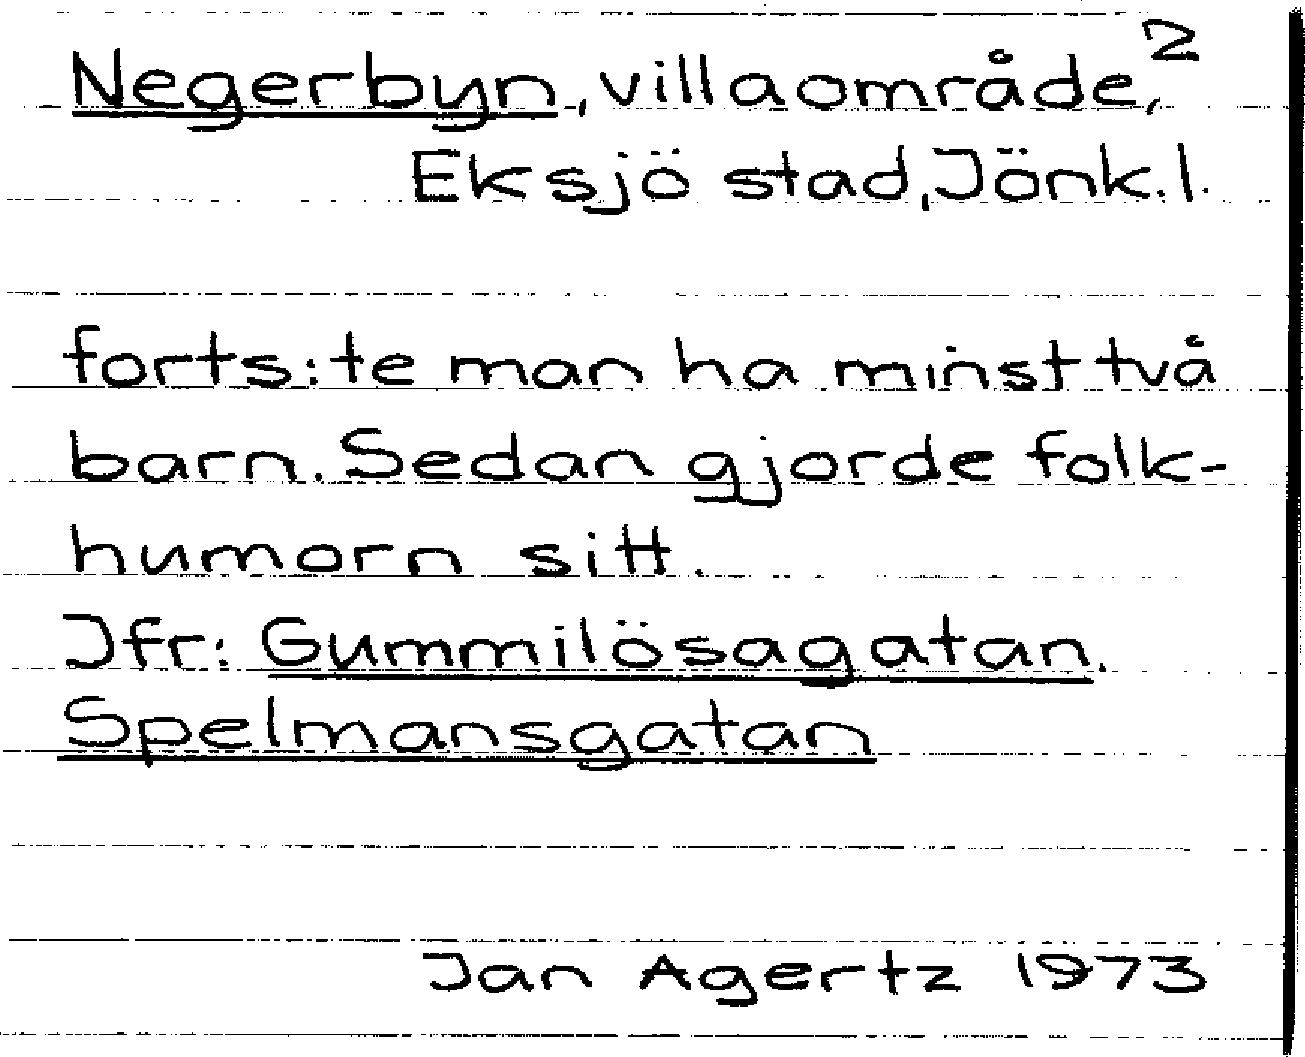 Negerbyn, villaområde, 2
Eksjö stad, Jönk.l.
forts: te man ha minst två
barn. Sedan gjorde folk-
humorn sitt.
Jfr: Gummilösagatan.
Spelmansgatan
Jan Agertz 1973